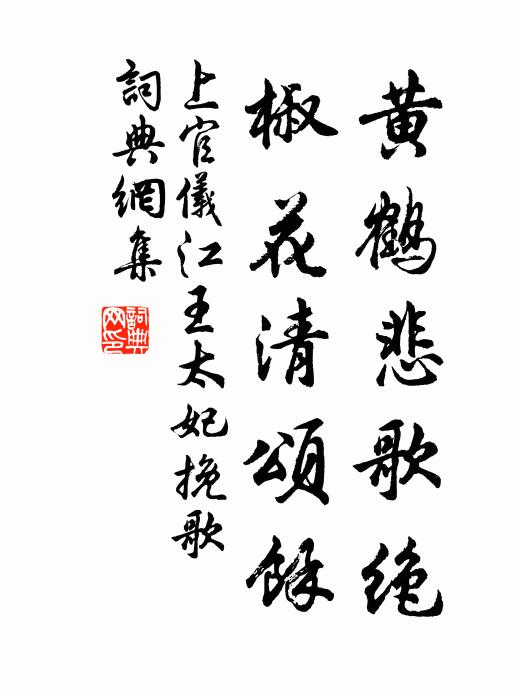 黄鹤悲歌绝
椒花清頌餘
上官儀江王太妃挽歌
詞典網集
詞典
网印